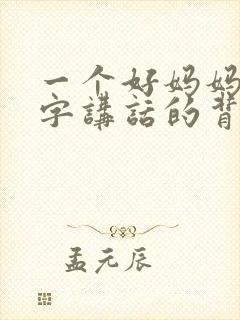 一个好妈妈
字講話的背
孟元辰